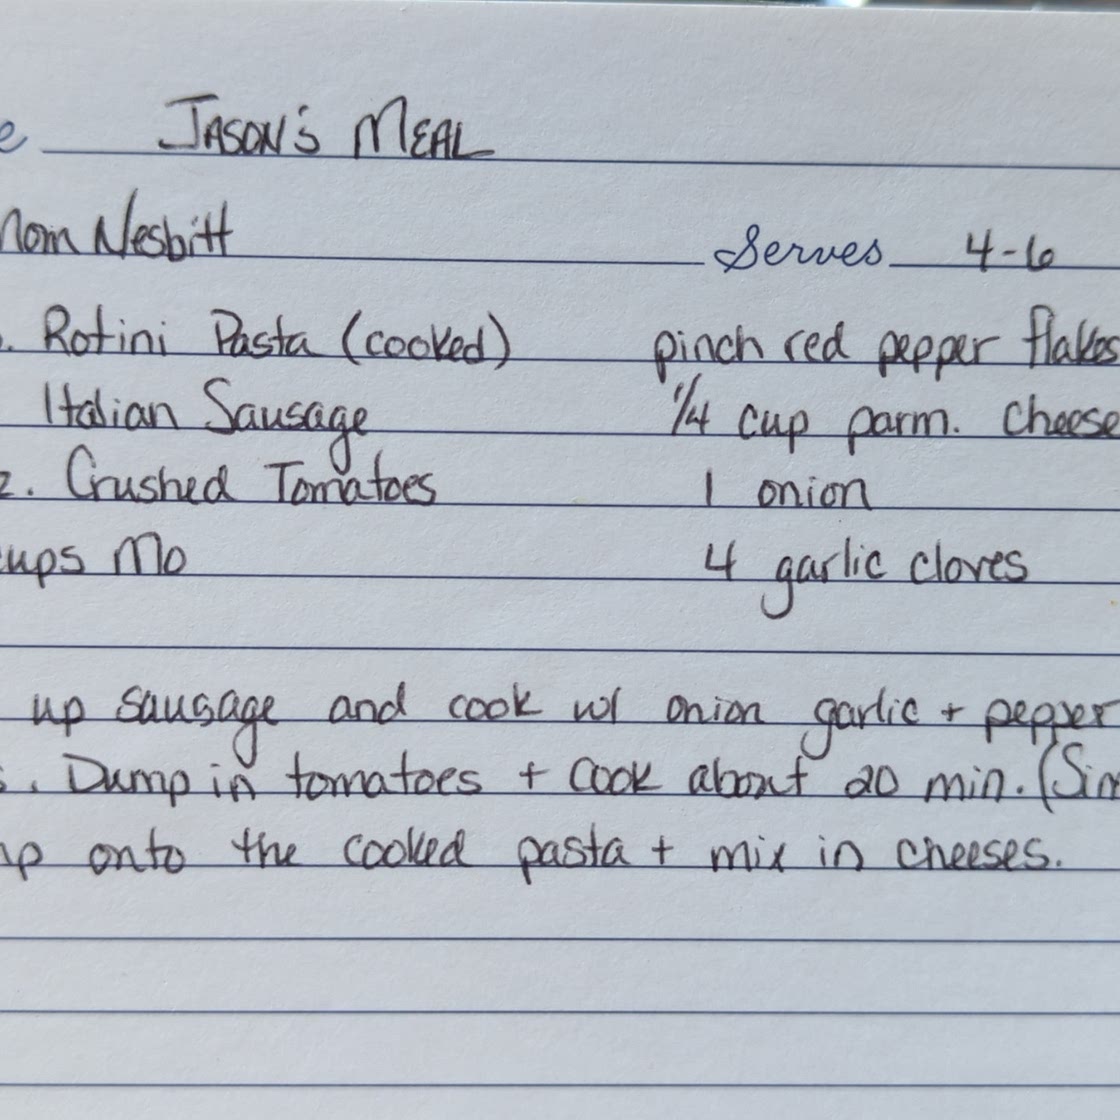 e JASON'S MEAL
Mom Nesbitt Serves 4-6
. Rotini Pasta (cooked) pinch red pepper flakes
Italian Sausage 1/4 cup parm. cheese
z. Crushed Tomatoes 1 onion
cups Mo 4 garlic cloves
up sausage and cook w/ onion garlic + pepper
s. Dump in tomatoes + cook about 20 min. (Sim
mp onto the cooked pasta + mix in cheeses.